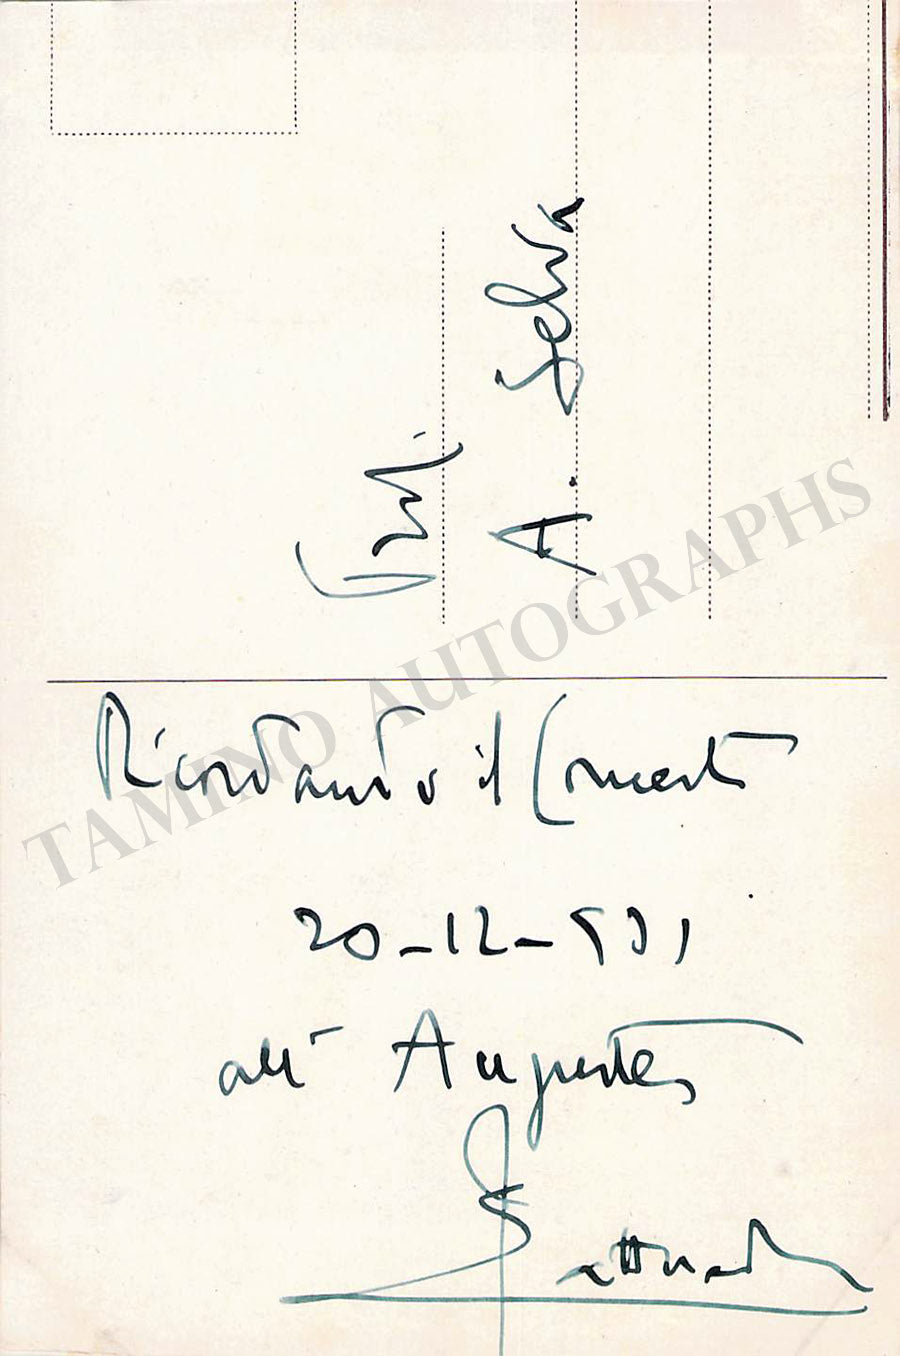 Prof.
A. Selva
Ricordando il Concerto
20-12-931
all' Augusteo
TAMINO AUTOGRAPHS